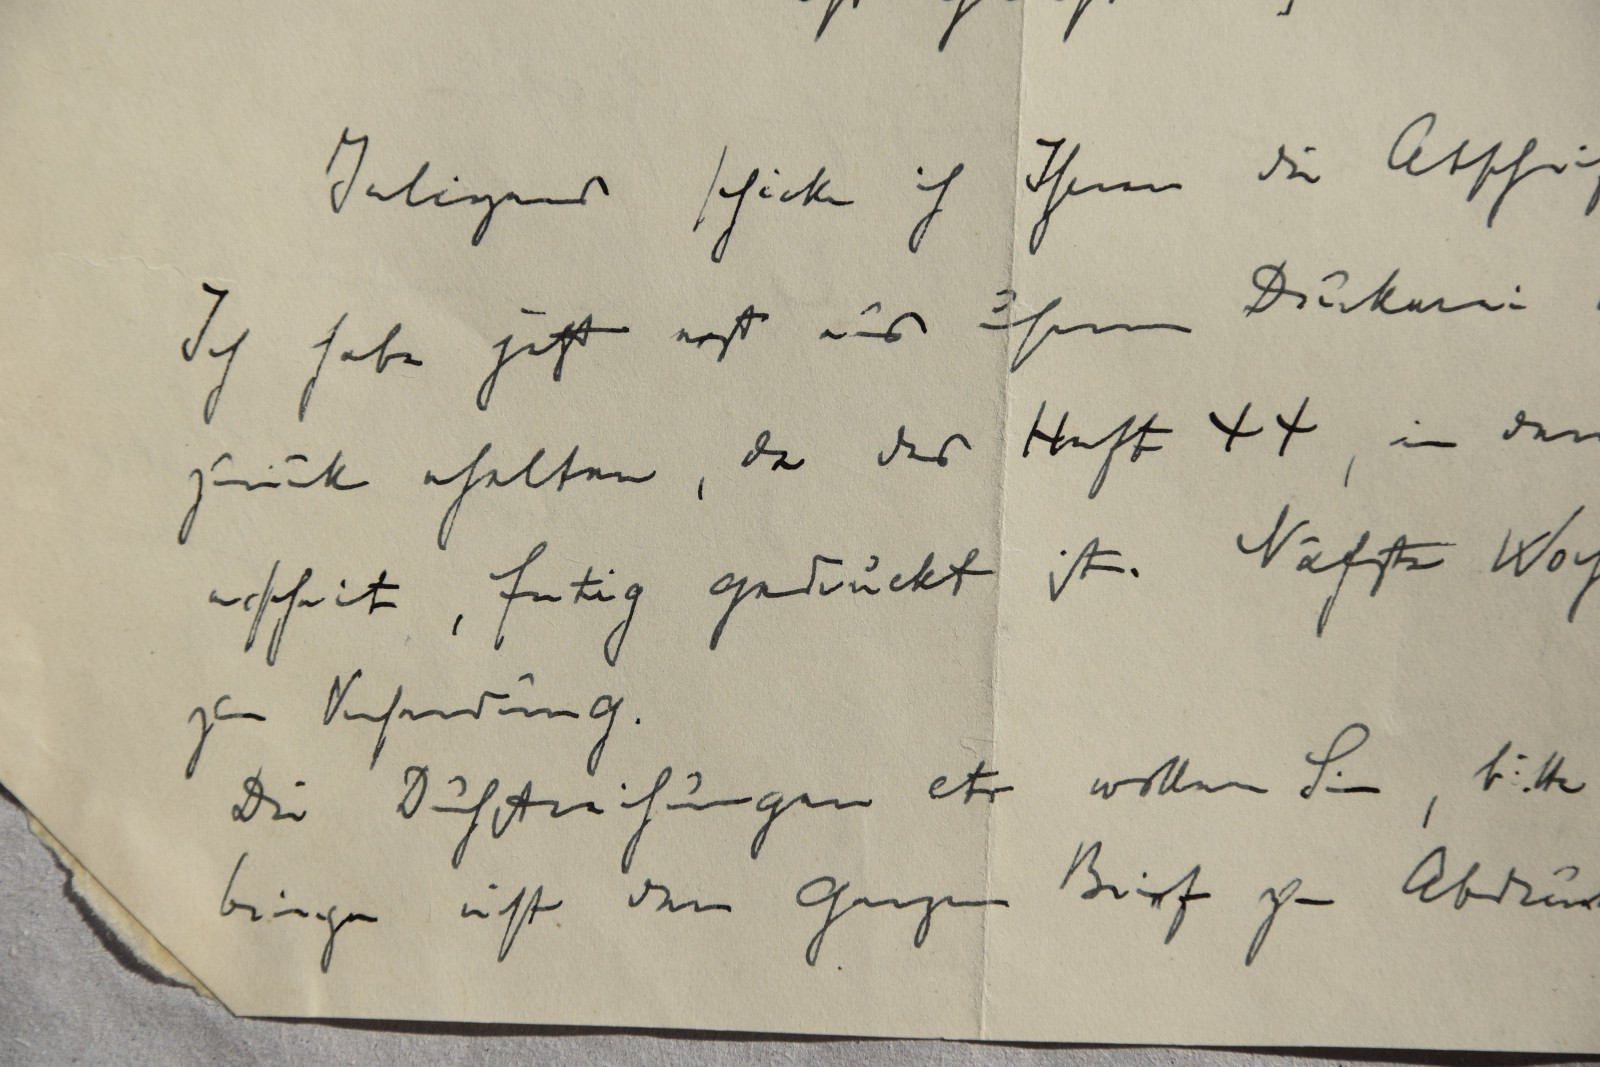 Inliegend schicke ich Ihnen die Abschrif
Ich habe jetzt erst aus Ihrer Druckerei
zurück erhalten, da das Heft 44, in dem
erscheint, fertig gedruckt ist. Nächste Woch
zur Versendung.
Die Durchstreichungen etc wollen Sie, bitte
bringe nicht den ganzen Brief zum Abdruck